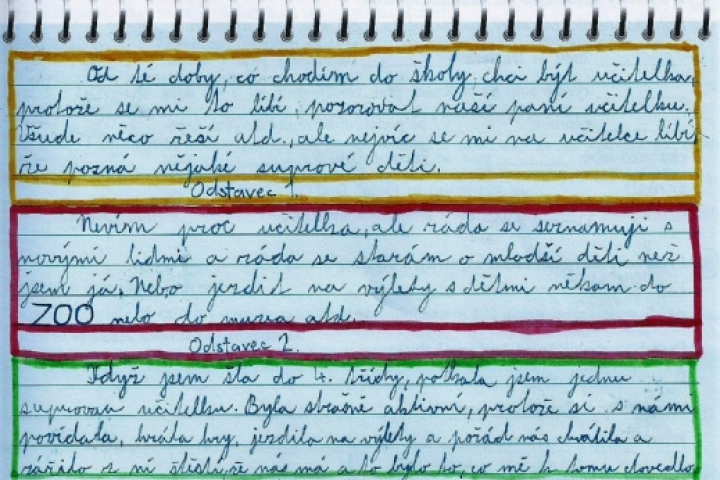 Od té doby, co chodím do školy, chci být učitelka,
protože se mi to líbí, pozorovat naší paní učitelku.
Všude něco řeší atd., ale nejvíc se mi na učitelce líbí,
že pozná nějaké suprové děti.
Odstavec 1.
Nevím proč učitelka, ale ráda se seznamuji s
novými lidmi a ráda se starám o mladší děti než
jsem já. Nebo jezdit na výlety s dětmi někam do
ZOO nebo do muzea atd.
Odstavec 2.
Když jsem šla do 4. třídy, potkala jsem jednu
suprovou učitelku. Byla strašně aktivní, protože si s námi
povídala, hrála hry, jezdila na výlety a pořád nás chválila a
zářilo z ní štěstí, že nás má a to bylo to, co mě k tomu dovedlo,